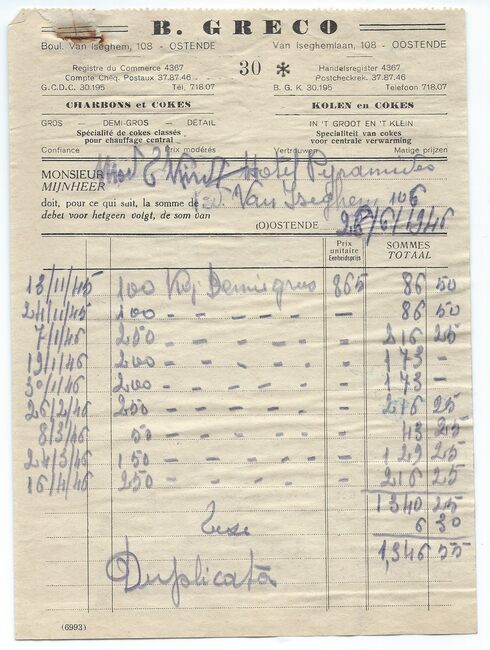 B. GRECO
Boul. Van Iseghem, 108 - OSTENDE Van Iseghemlaan, 108 - OOSTENDE
Registre du Commerce 4367 30 * Handelsregister 4367
Compte Chèq. Postaux 37.87.46 Postcheckrek. 37.87.46
G.C.D.C. 30.195 Tél. 718.07 B. G. K 30.195 Telefoon 718.07
CHARBONS et COKES KOLEN en COKES
GROS - DEMI-GROS - DÉTAIL IN 'T GROOT EN 'T KLEIN
Spécialité de cokes classés Specialiteit van cokes
pour chauffage central voor centrale verwarming
Confiance Prix modérés Vertrouwen Matige prijzen
MONSIEUR Hotel Pyramides
MIJNHEER
doit, pour ce qui suit, la somme de Bd Van Iseghem 106
debet voor hetgeen volgt, de som van
(O)OSTENDE 28/6/1946
Prix unitaire SOMMES
Eenheidsprijs TOTAAL
13/11/45 100 Kg Demi gras 865 86 50
24/11/45 100 - - - - - 86 50
7/1/46 250 - - - - - 216 25
19/1/46 200 - - - - - 173 -
30/1/46 200 - - - - - 173 -
26/2/46 250 - - - - - 216 25
8/3/46 50 - - - - - 43 25
24/3/46 150 - - - - - 129 25
16/4/46 250 - - - - - 216 25
1340 25
Taxe 6 30
1,346 55
Duplicata
(6993)